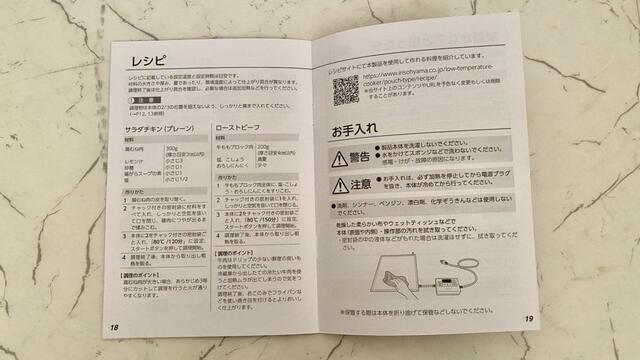 レシピ
レシピに記載している設定温度と設定時間は目安です。
材料の大きさや厚さ、量であったり、環境温度によって仕上がり具合が異なります。
調理終了後は仕上がり具合を確認し、必要な場合は追加加熱などを行ってください。
注意
調理物は本体の2/3の位置を超えないよう、しっかりと奥まで入れてください。
(→P12、13参照)
サラダチキン(プレーン)
材料
鶏むね肉 300g
(厚さ目安3cm以内)
レモン汁 小さじ3
砂糖 小さじ1
鶏がらスープの素 小さじ1
塩 小さじ1/2
作りかた
1 鶏むね肉の皮を取り除く。
2 チャック付きの密封袋に材料をすべて入れ、しっかりと空気を抜いて口を閉じる。鶏肉につやが出るまで揉みこむ。
3 本体に2をチャック付きの密封袋ごと入れ、「80℃/120分」に設定、スタートボタンを押して調理開始。
4 調理終了後、本体から取り出し粗熱を取る。
【調理のポイント】
鶏むね肉が大きい場合、あらかじめ3等分にカットして調理を行うと火が通りやすくなります。
18
ローストビーフ
材料
牛ももブロック肉 200g
(厚さ目安3cm以内)
塩、こしょう 適量
おろしにんにく 少々
作りかた
1 牛ももブロック肉全体に、塩・こしょう・おろしにんにくをすりこむ。
2 チャック付きの密封袋に1を入れ、しっかりと空気を抜いて口を閉じる。
3 本体に2をチャック付きの密封袋ごと入れ、「80℃/120分」に設定、スタートボタンを押して調理開始。
4 調理終了後、本体から取り出し粗熱を取る。
【調理のポイント】
牛肉はドリップの少ない鮮度の良いものを使用してください。
冷蔵庫から出したての冷たい牛肉を使うと加熱ムラが出てしまうので気をつけてください。
調理終了後、お このみでフライパンなどを使い焼き目を付けるとよりおいしく仕上がります。
レシピサイトにて本製品を使用して作れる料理を紹介しています。
https://www.irisohyama.co.jp/low-temperature-
cooker/pouch-type/recipe/
※当サイト上のコンテンツやURLを予告なく変更もしくは削除
することがあります。
お手入れ
警告
●製品本体を洗濯しないでください。
●水をかけてスポンジなどで洗わないでください。
感電・けが・故障の原因になります。
注意
●お手入れは、必ず加熱を停止してから電源プラグ
を抜き、本体が冷めてから行ってください。
●洗剤、シンナー、ベンジン、漂白剤、化学ぞうきんなどは使用しない
でください。
乾燥した柔らかい布やウェットティッシュなどで
本体(表面や内側)・操作部の汚れを拭き取ってください。
・密封袋の中の液体などがもれた場合は洗濯はせずに、拭き取ってくだ
さい。
※保管する際は本体を折り曲げて保管などしないでください。
19